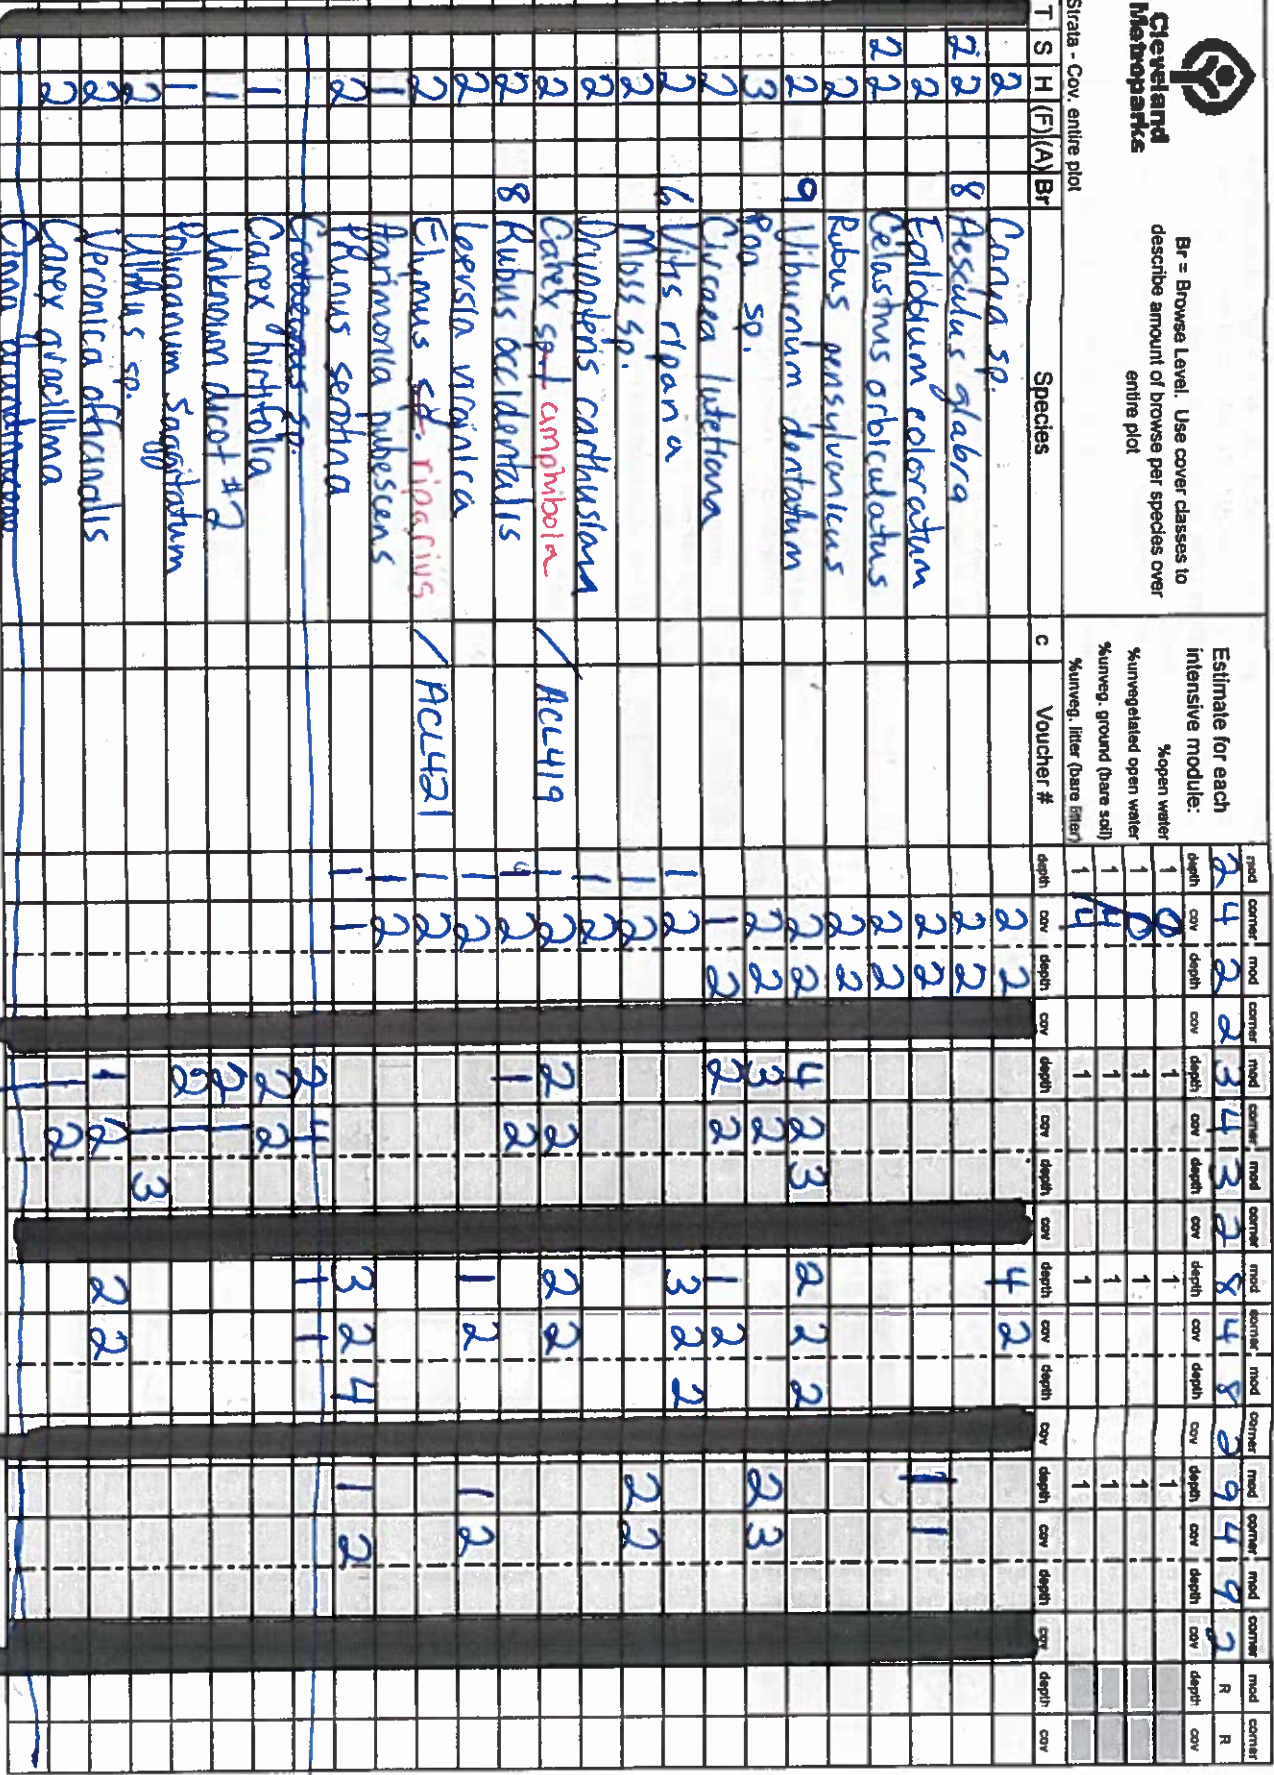 Cleveland
Metroparks
Br = Browse Level. Use cover classes to
describe amount of browse per species over
entire plot
Strata - Cov. entire plot
Estimate for each
intensive module:
%open water
%unvegetated open water
%unveg. ground (bare soil)
%unveg. litter (bare litter)
mod corner mod corner mod corner mod corner mod corner mod corner mod corner mod corner mod corner
2 4 2 2 3 4 3 2 8 4 8 2 9 4 9 2 R R
depth cov depth cov depth cov depth cov depth cov depth cov depth cov depth cov depth cov
1 0 1 1 1
1 0 1 1 1
1 1 1 1
1 4 1 1 1
T S H (F) (A) Br Species c Voucher # depth cov depth cov depth cov depth cov depth cov depth cov depth cov depth cov depth cov
2 Carya sp. 2 2 4 2
2 2 8 Aesculus glabra 2 2
2 Epilobium coloratum 2 2 1 1
2 2 Celastrus orbiculatus 2 2
2 Rubus pensylvanicus 2 2
2 9 Viburnum dentatum 2 2 4 2 3 2 2 2
3 Poa sp. 2 2 3 2 2 3
2 Circaea lutetiana 1 2 2 2 1 2
2 6 Vitis riparia 1 2 3 2 2
2 Moss sp. 1 2 2 2
2 Dryopteris carthusiana 1 2
2 Carex sp.1 amphibola / ACL419 1 2 2 2 2 2
2 8 Rubus occidentalis 2 1 2
2 Leersia virginica 1 2 1 2 1 2
2 Elymus sp. riparius / ACL421 1 2
1 Agrimonia pubescens 1 2
2 Prunus serotina 1 1 3 2 4 1 2
Crataegus sp. 2 4 1 1
1 Carex hirtifolia 2 2
1 Unknown dicot #2 2 1
1 Polygonum sagittatum 2 1
2 Ulmus sp. 1 3
2 Veronica officinalis 1 2 2 2
2 Carex gracillima 1 2
Cinna arundinacea